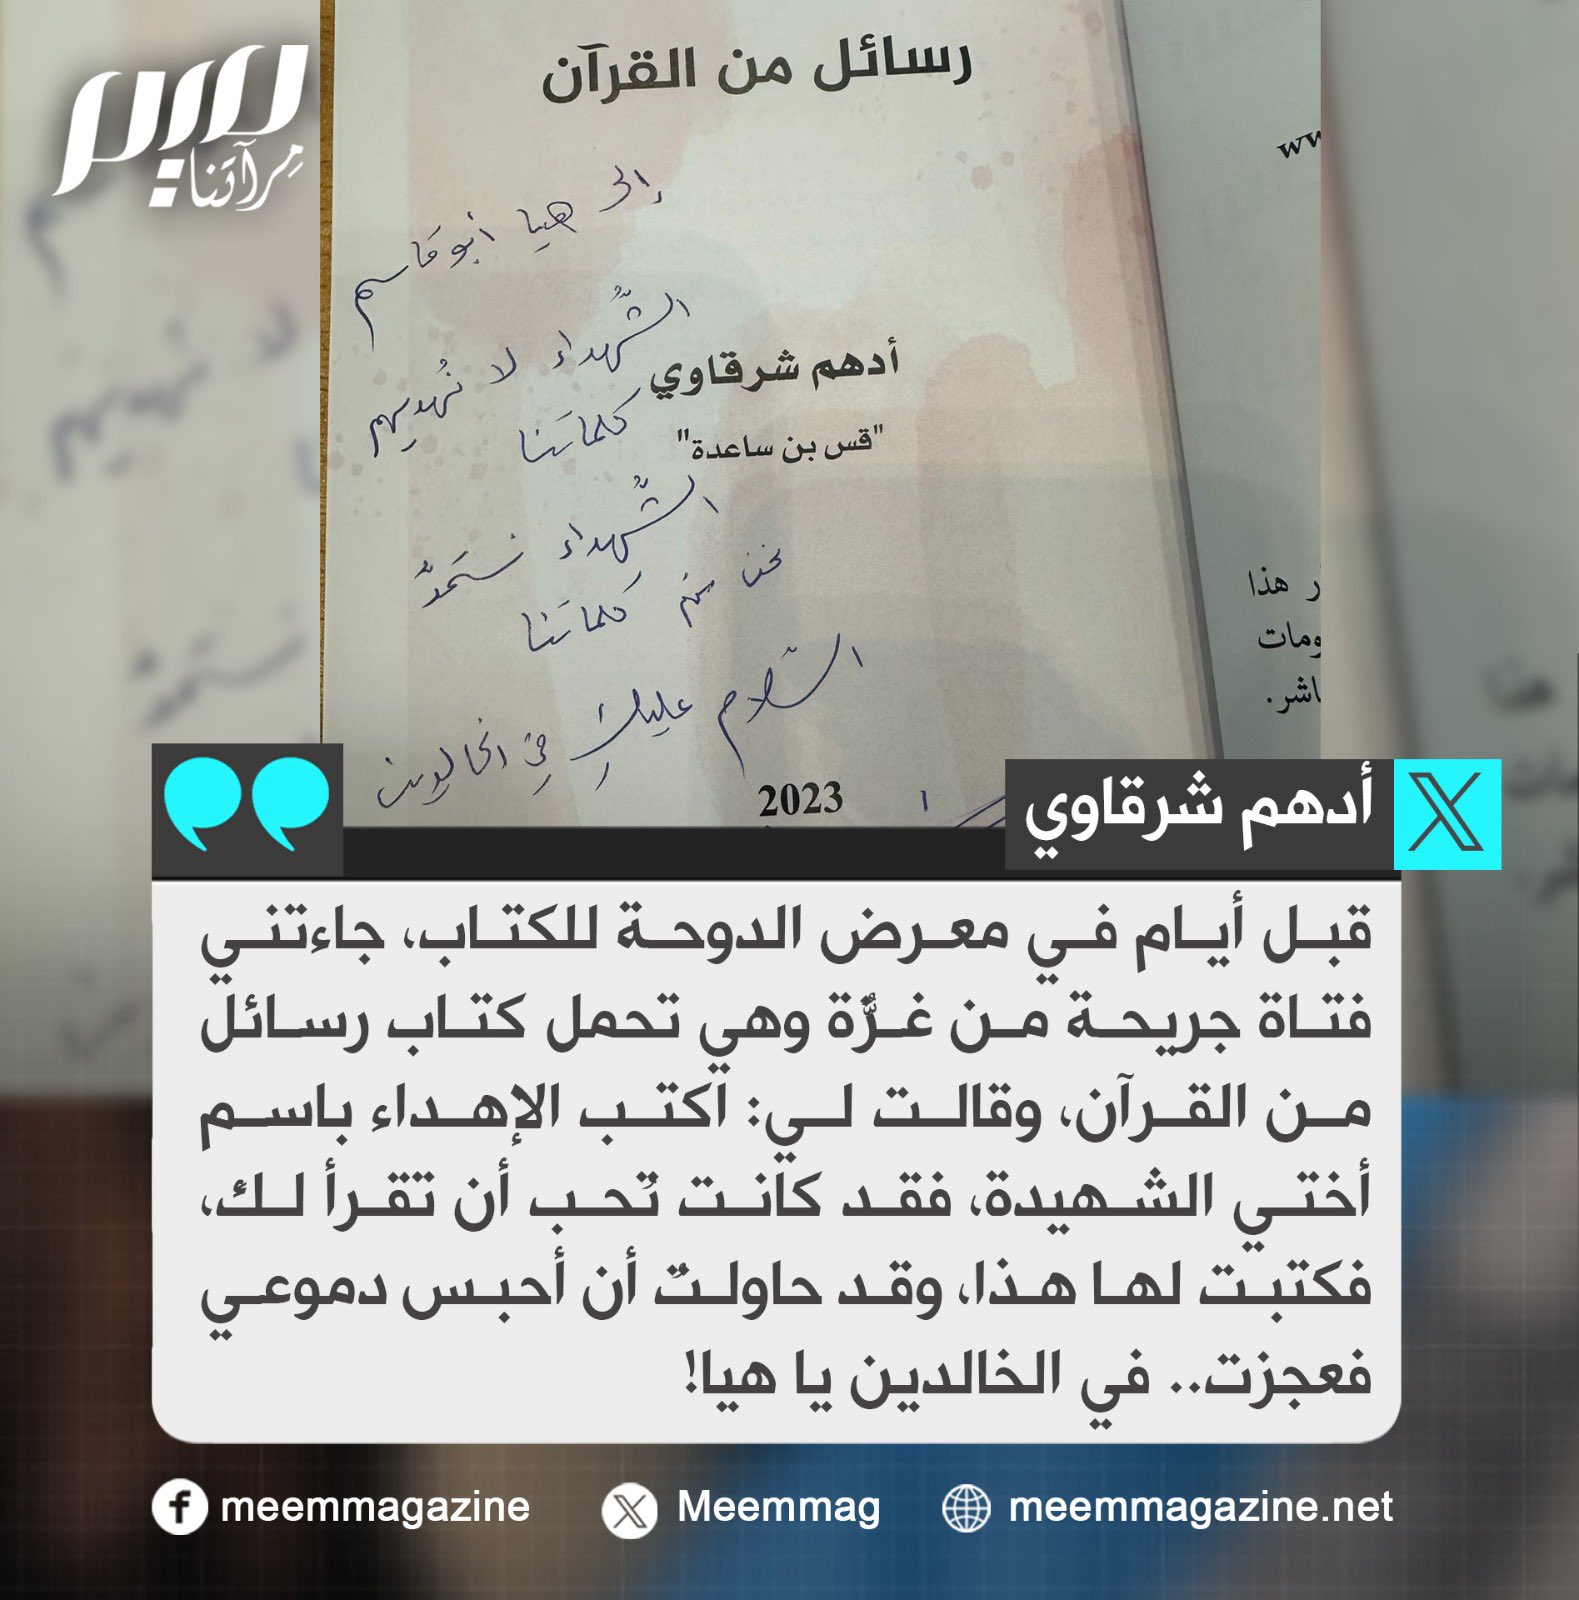 ميم
مِرآتنا
رسائل من القرآن
www
إلى هيا أبو قاسم
الشُّهداء لا نُهديهم
كلماتَنا
أدهم شرقاوي
"قس بن ساعدة"
الشُّهداء نستمدُّ
نحن منهم كلماتَنا
السّلام عليكِ في الخالدين
2023
ر هذا
ومات
اشر.
أدهم شرقاوي
قبل أيام في معرض الدوحة للكتاب، جاءتني
فتاة جريحة من غزَّة وهي تحمل كتاب رسائل
من القرآن، وقالت لي: اكتب الإهداء باسم
أختي الشهيدة، فقد كانت تُحب أن تقرأ لك،
فكتبت لها هذا، وقد حاولتُ أن أحبس دموعي
فعجزت.. في الخالدين يا هيا!
meemmagazine
Meemmag
meemmagazine.net